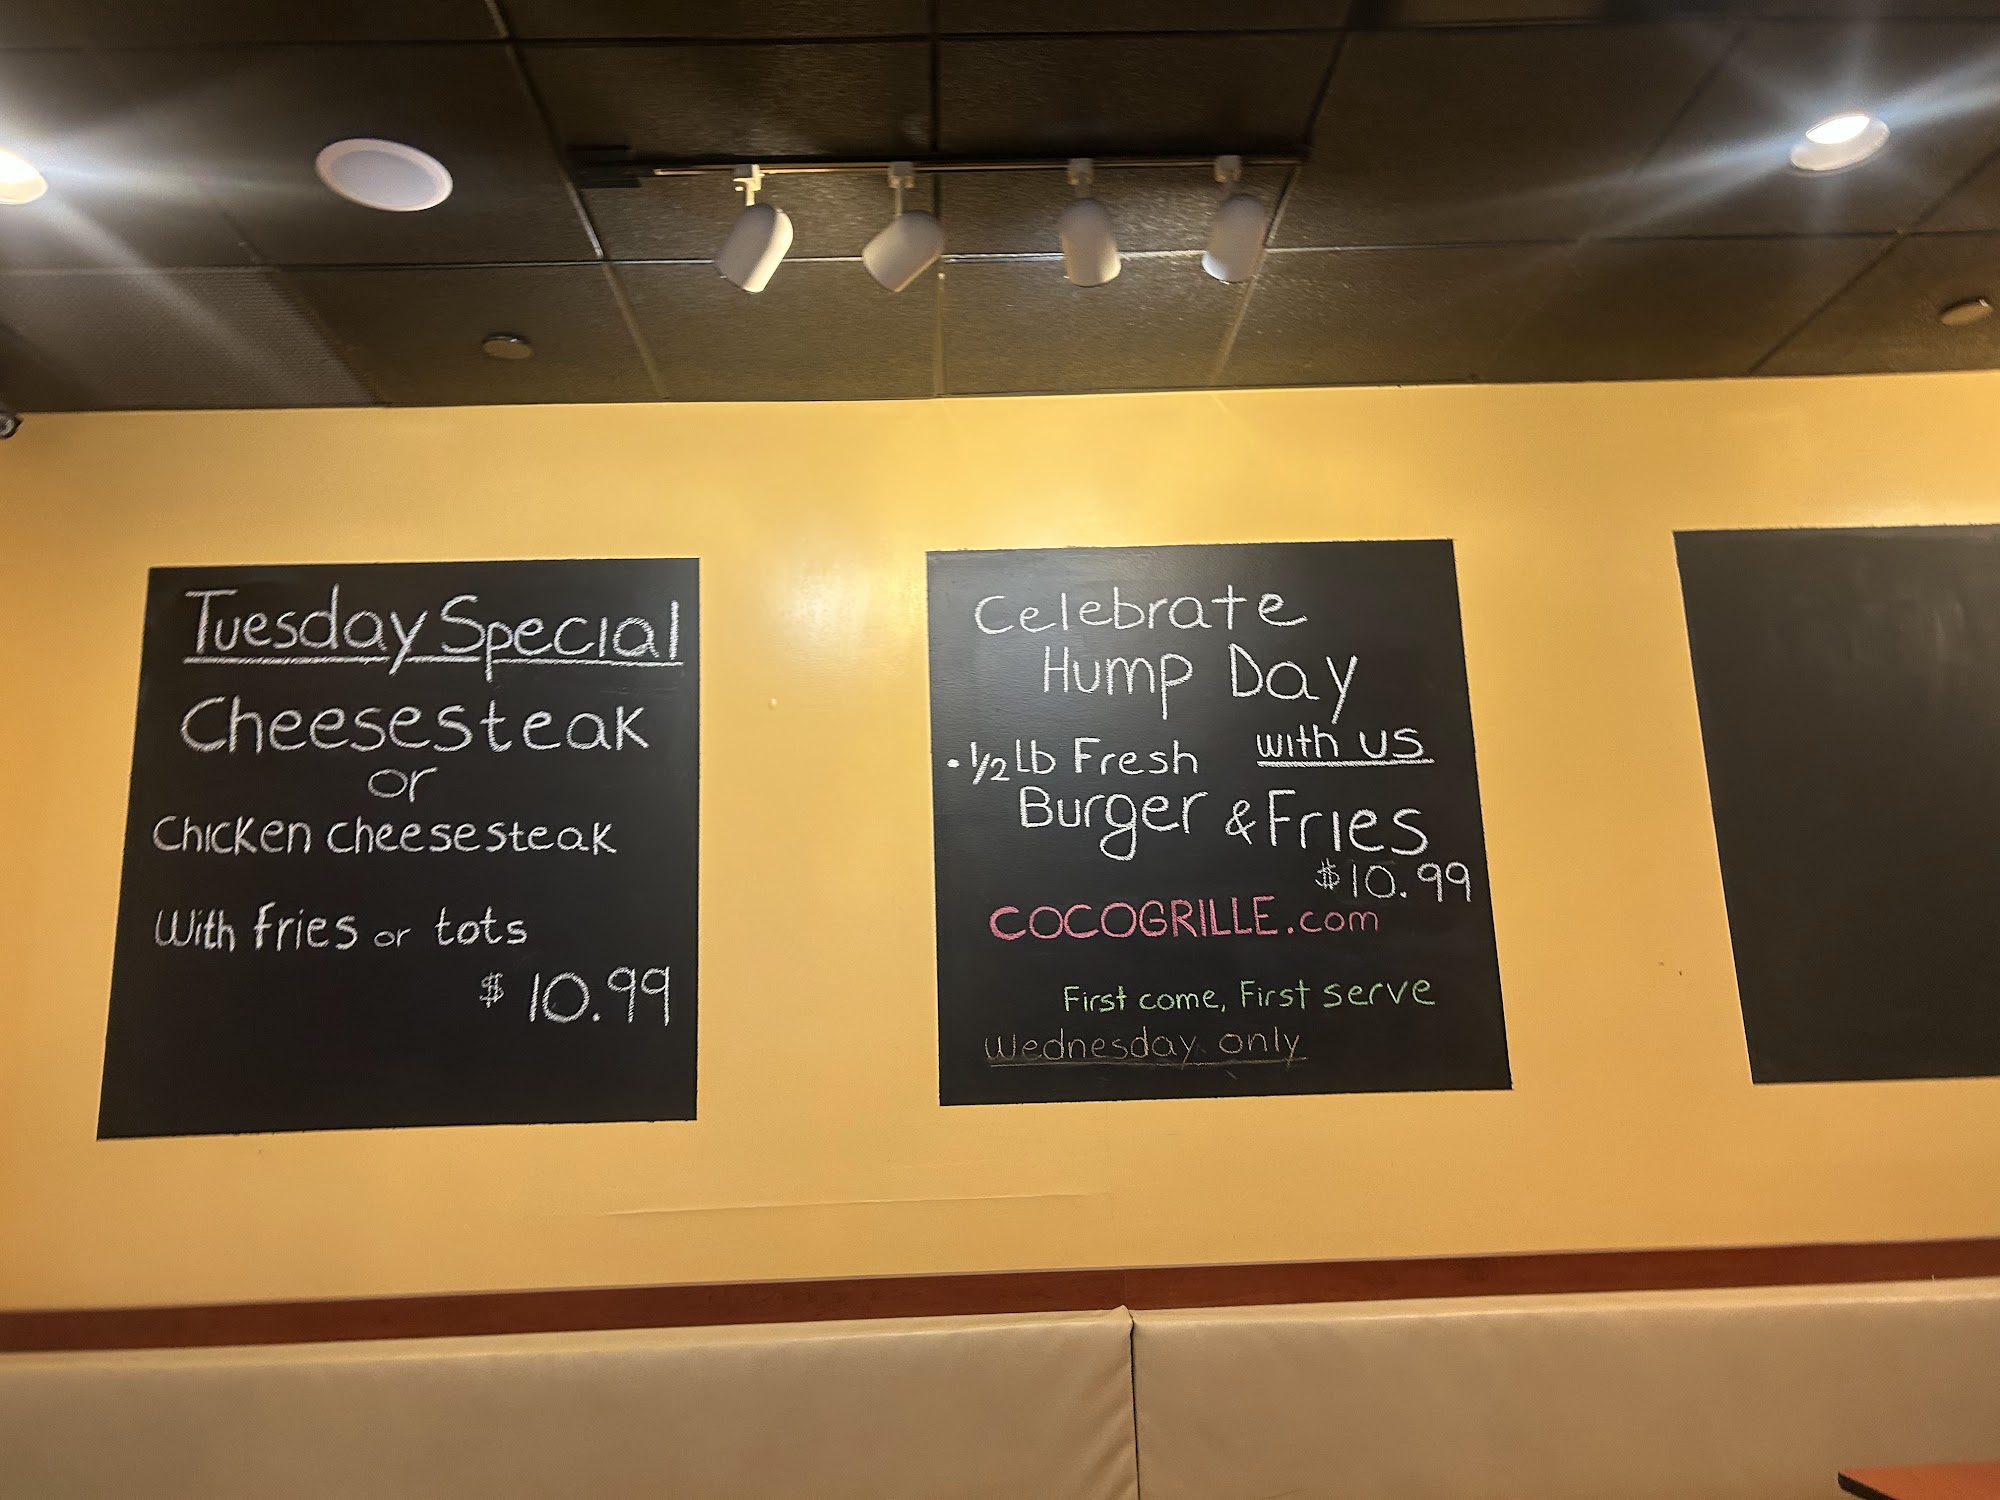 Tuesday Special
Cheesesteak
or
Chicken cheesesteak
With fries or tots
$ 10.99
Celebrate
Hump Day
with us
• 1/2 Lb Fresh
Burger & Fries
$10.99
COCOGRILLE.com
First come, First serve
Wednesday only